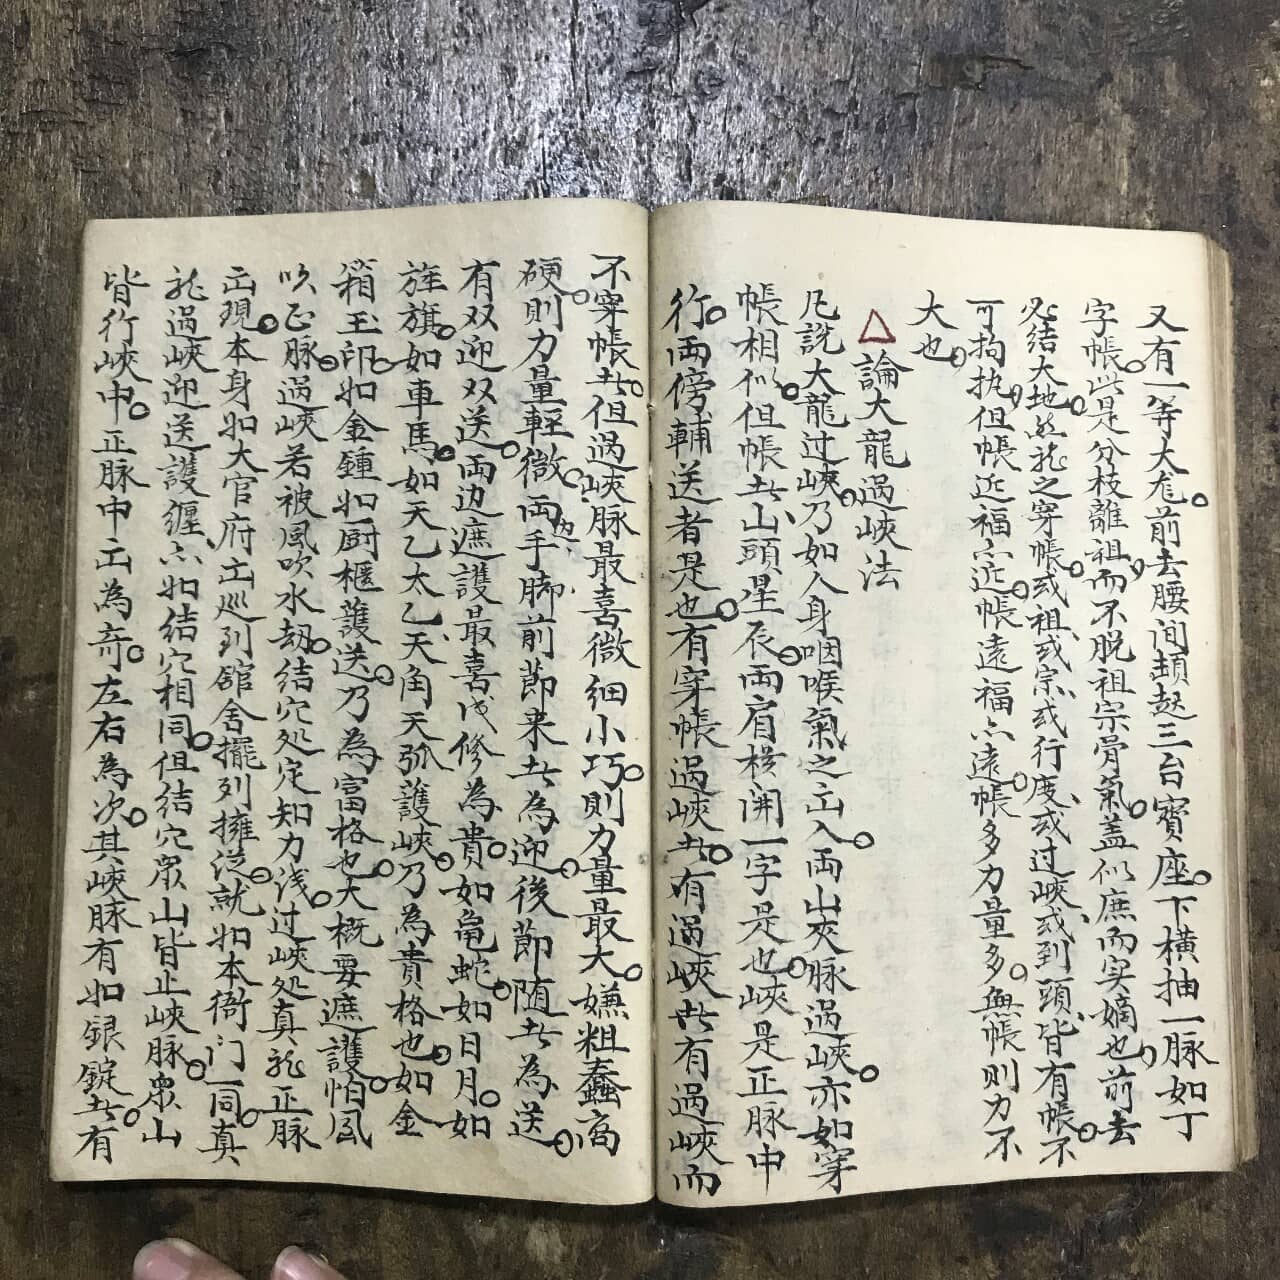 又有一等大龙前去腰间頓起三台寳座下横抽一脉如丁
字帳此是分枝離祖而不脱祖宗骨氣盖似庶而实嫡也前去
必结大地然龙之穿帳或祖或宗或行度或过峡或到頭皆有帳不
可拘执但帳近福亦近帳遠福亦遠帳多力量多無帳则力不
大也
△論大龍過峡法
凡説大龍过峡乃如人身咽喉氣之出入两山夾脉過峡亦如穿
帳相似但帳者山頭星辰两肩横開一字是也峡是正脉中
行两傍輔送者是也有穿帳過峡者有過峡者有過峡而
不穿帳者但過峡脉最喜微细小巧則力量最大嫌粗蠢高
硬則力量輕微两边手脚前節来者為迎後節随者為送
有双迎双送两边遮護最喜成修為貴如龟蛇如日月如
旌旗如車馬如天乙太乙天角天弧護峡乃為貴格也如金
箱玉印如金鍾如厨櫃護送乃為富格也大概要遮護怕風
吹正脉過峡若被風吹水劫结穴处定知力浅过峡处真龙正脉
出現本身如大官府出巡到舘舍擺列擁从就如本衙门一同真
龙過峡迎送護纏亦如结穴相同但结穴衆山皆止峡脉衆山
皆行峡中正脉中出為奇左右為次其峡脉有如銀錠者有